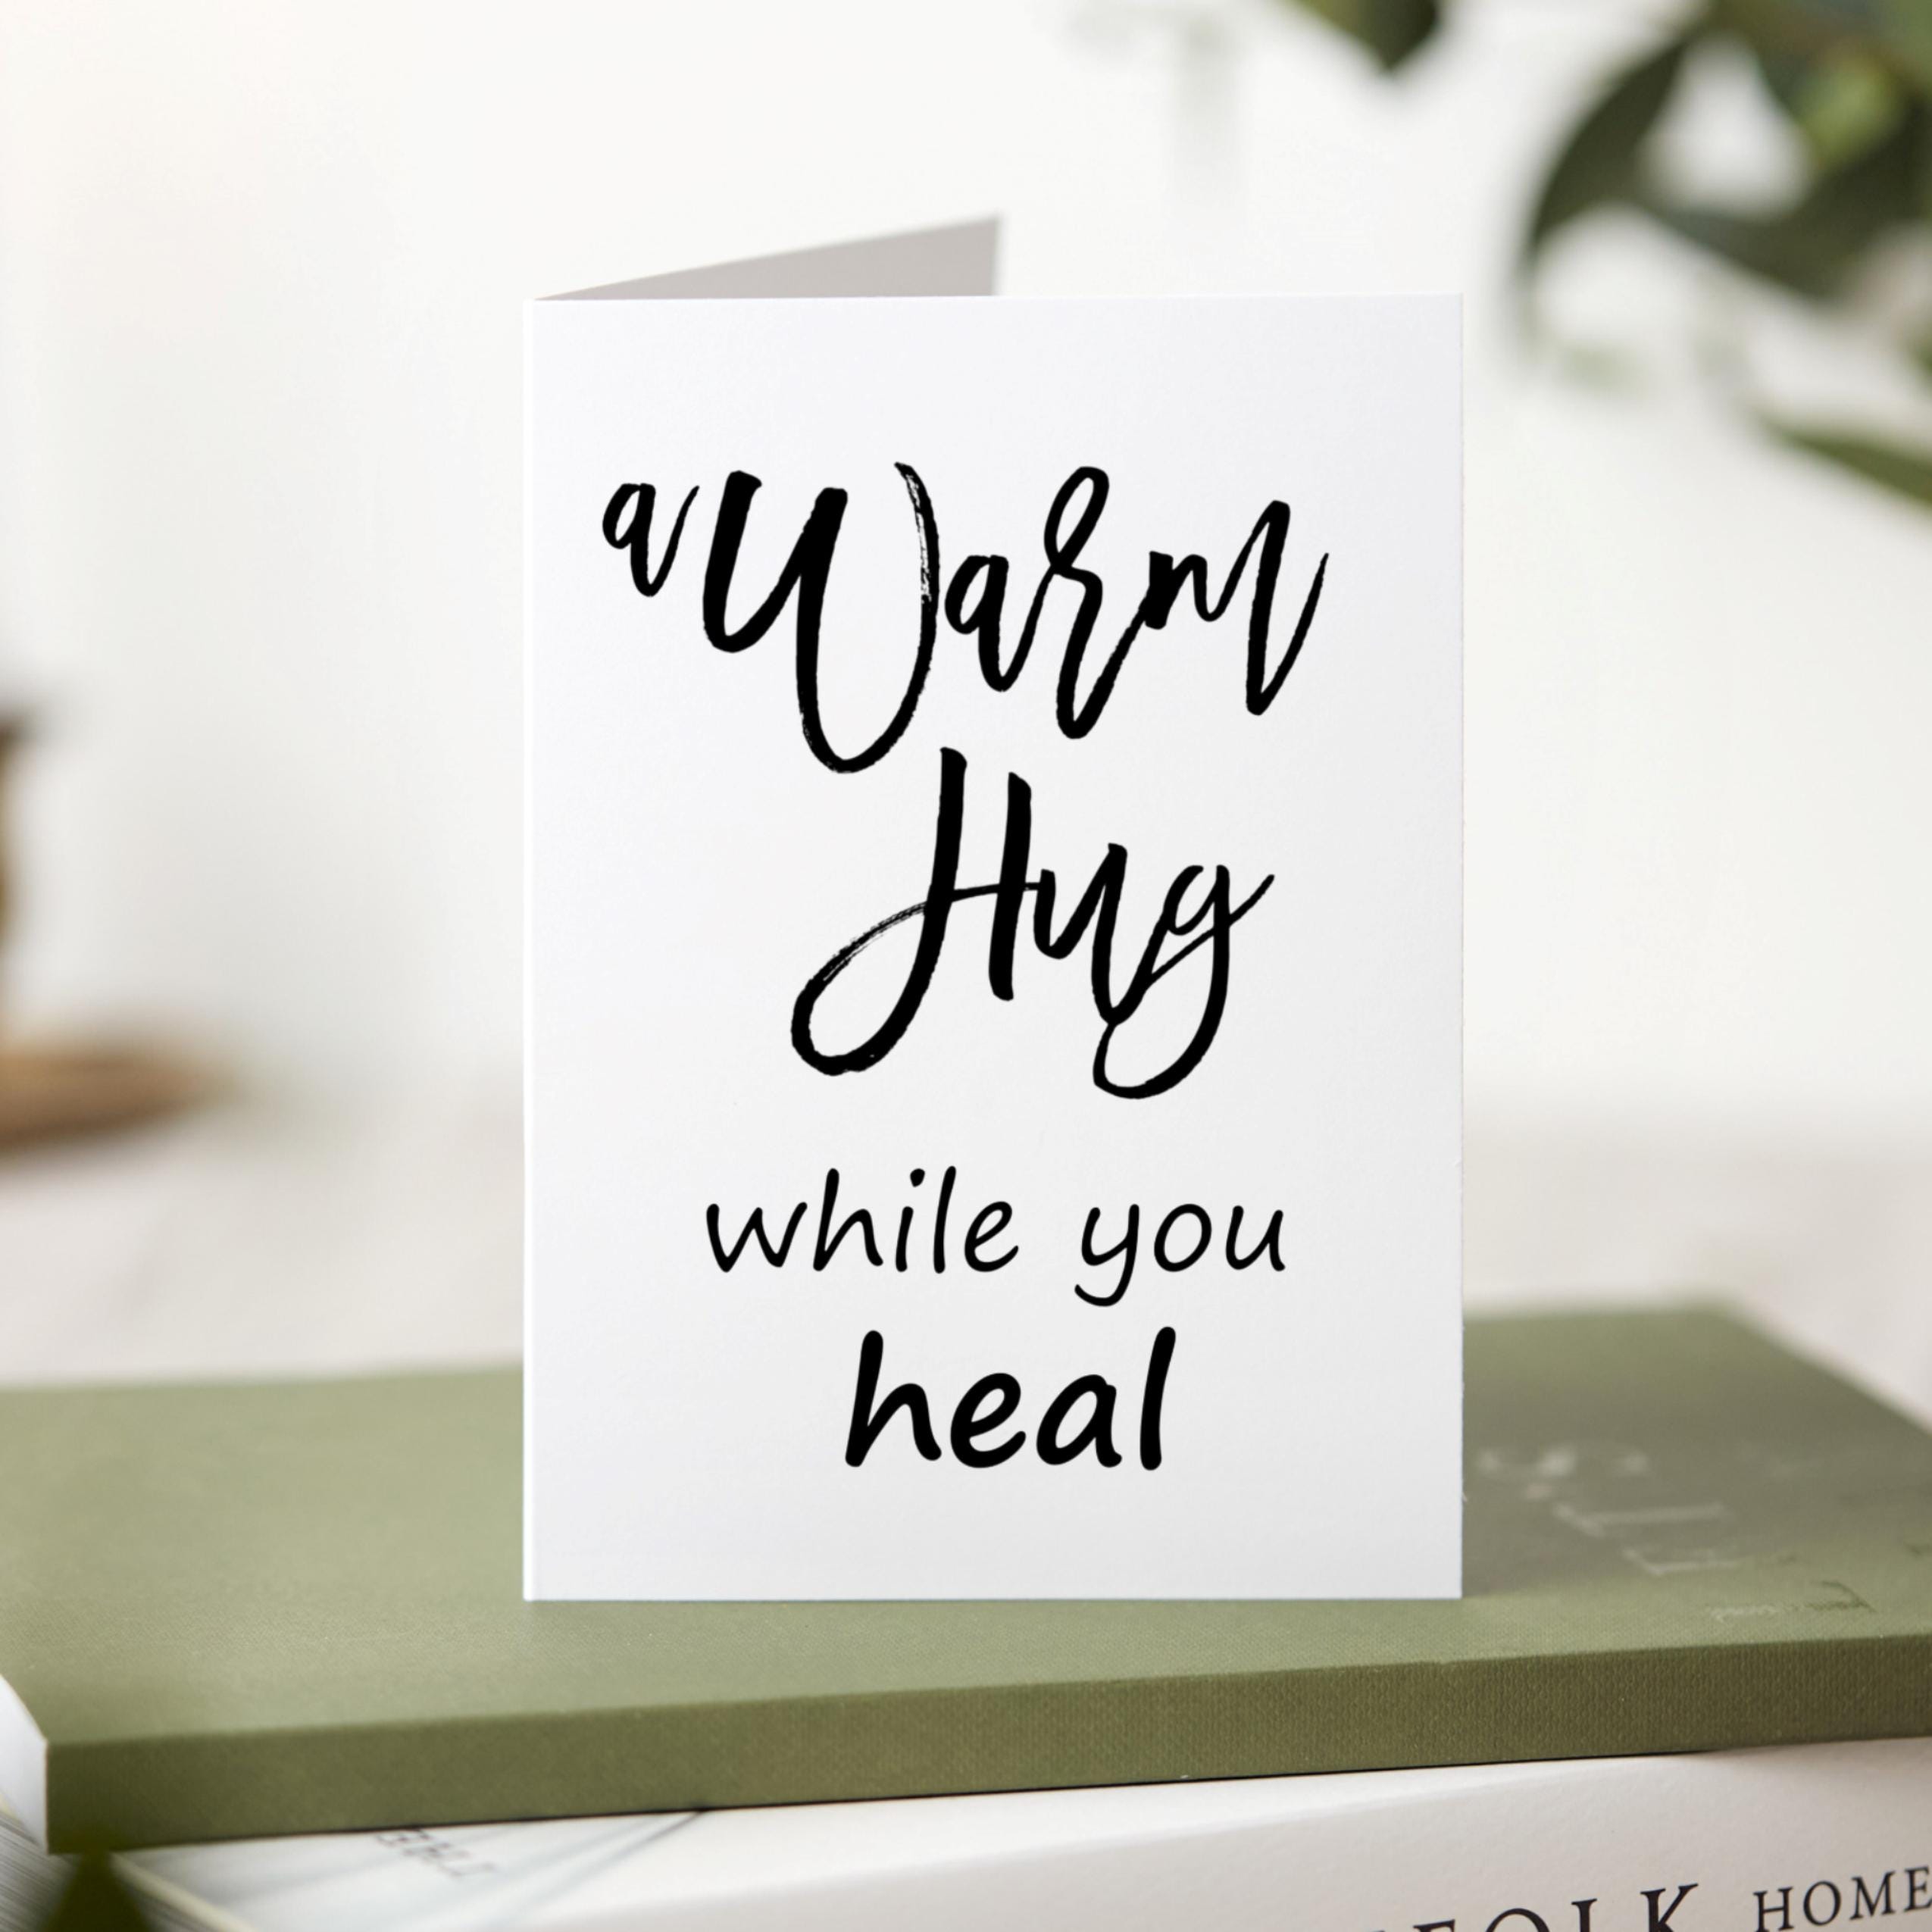 a Warm
Hug
while you
heal
HOME